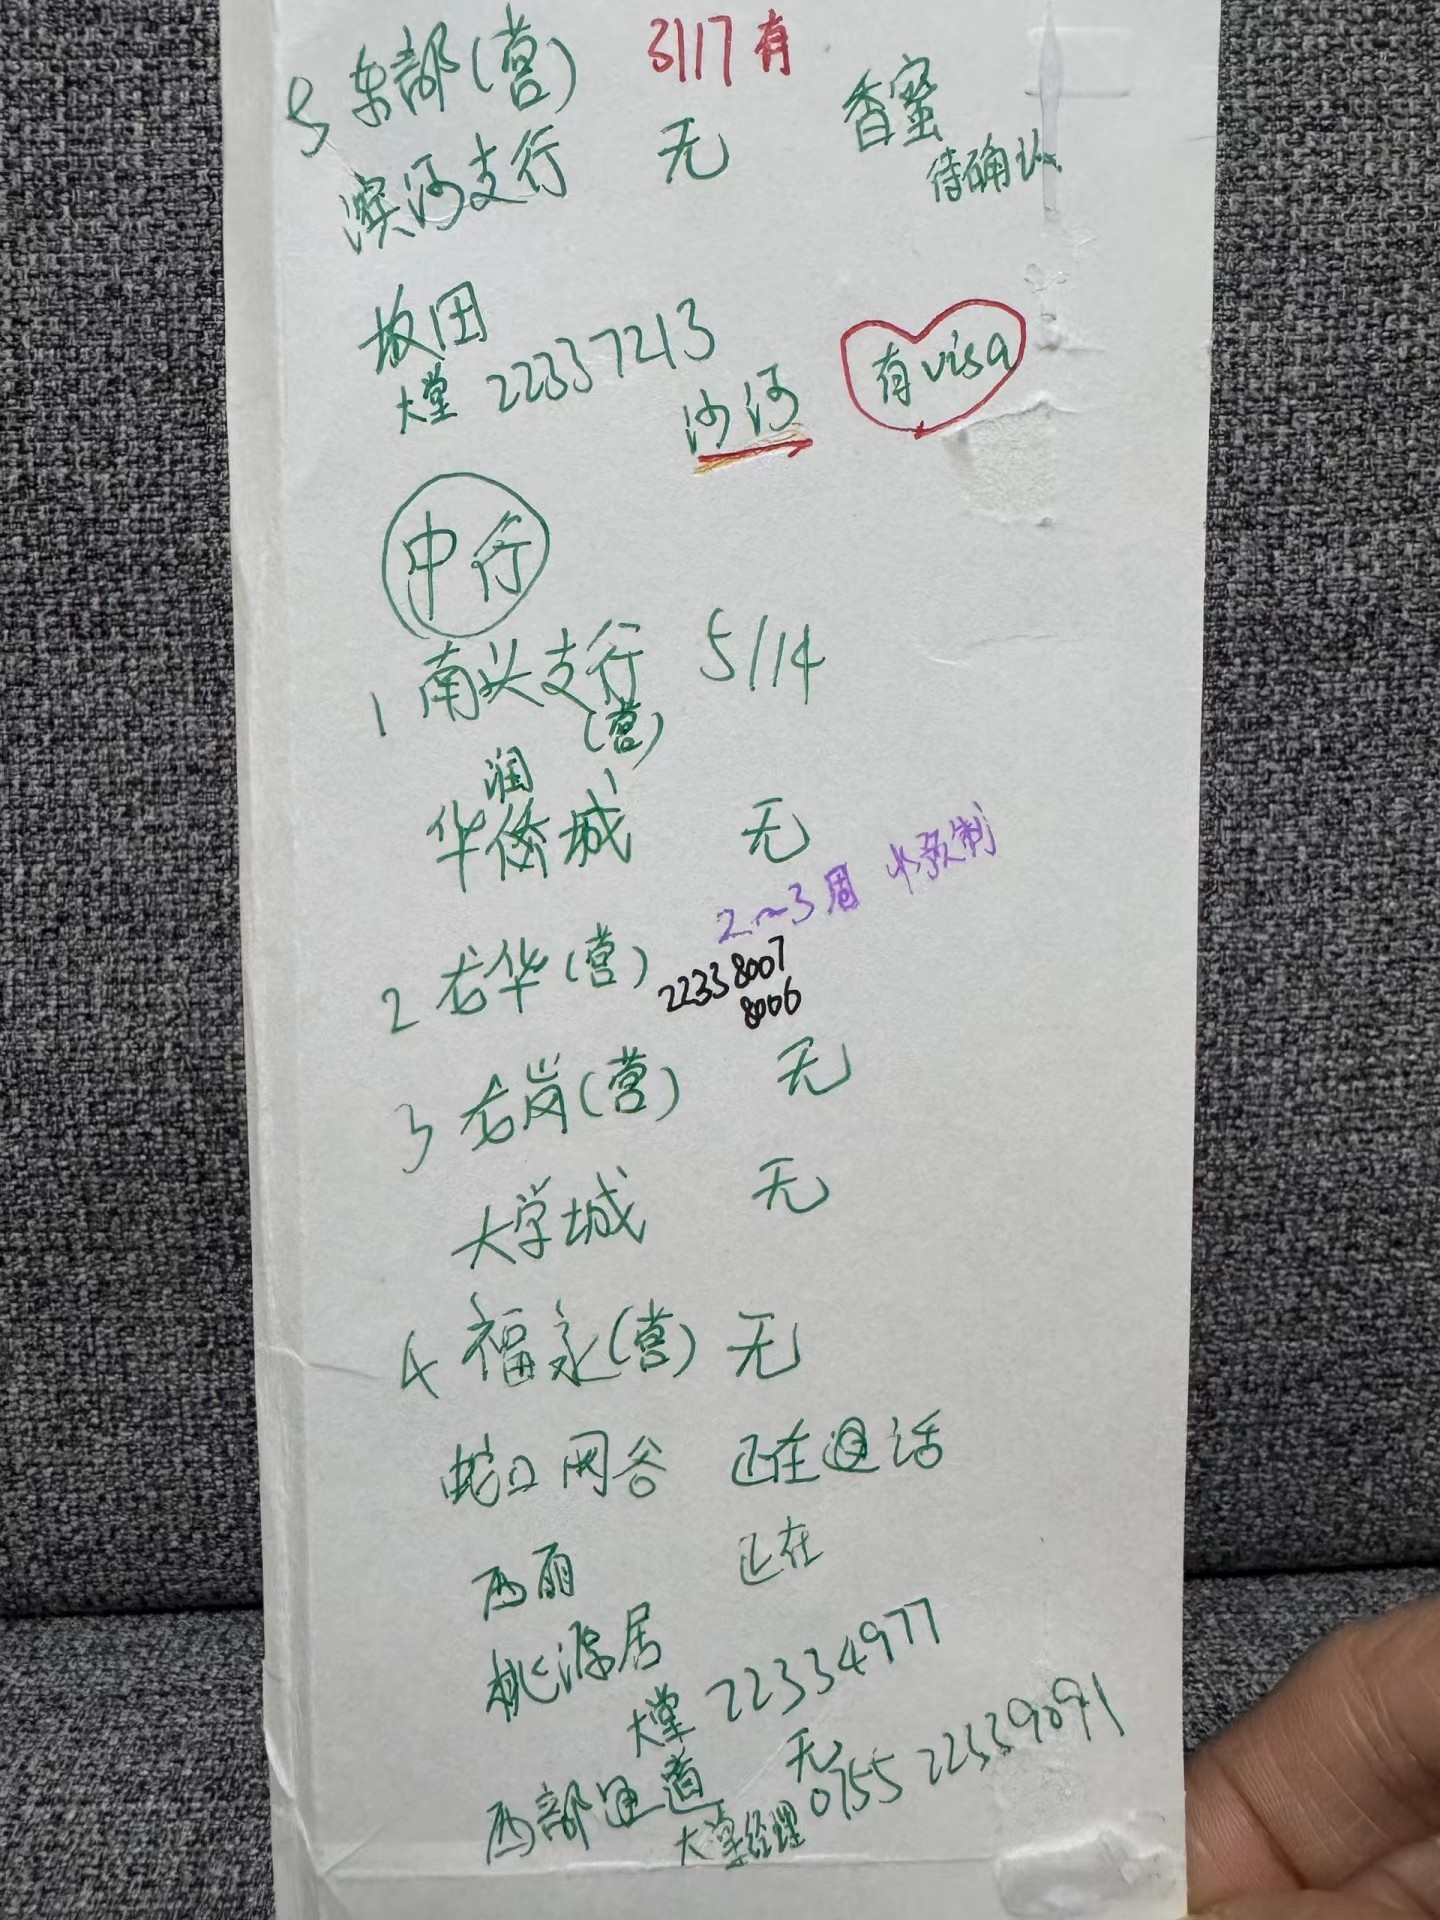 5 东部(营) 3117有
滨河支行 无 香蜜
待确认
坂田
大堂 22337213
沙河 有visa
中行
1 南头支行 5114
(营)
润
华侨城 无
2~3周 预制
2 龙华(营) 22338007
8006
3 龙岗(营) 无
大学城 无
4 福永(营) 无
蛇口网谷 正在通话
西丽 正在
桃源居
大堂 22334977
西部通道 无
大堂经理 0755 22339091